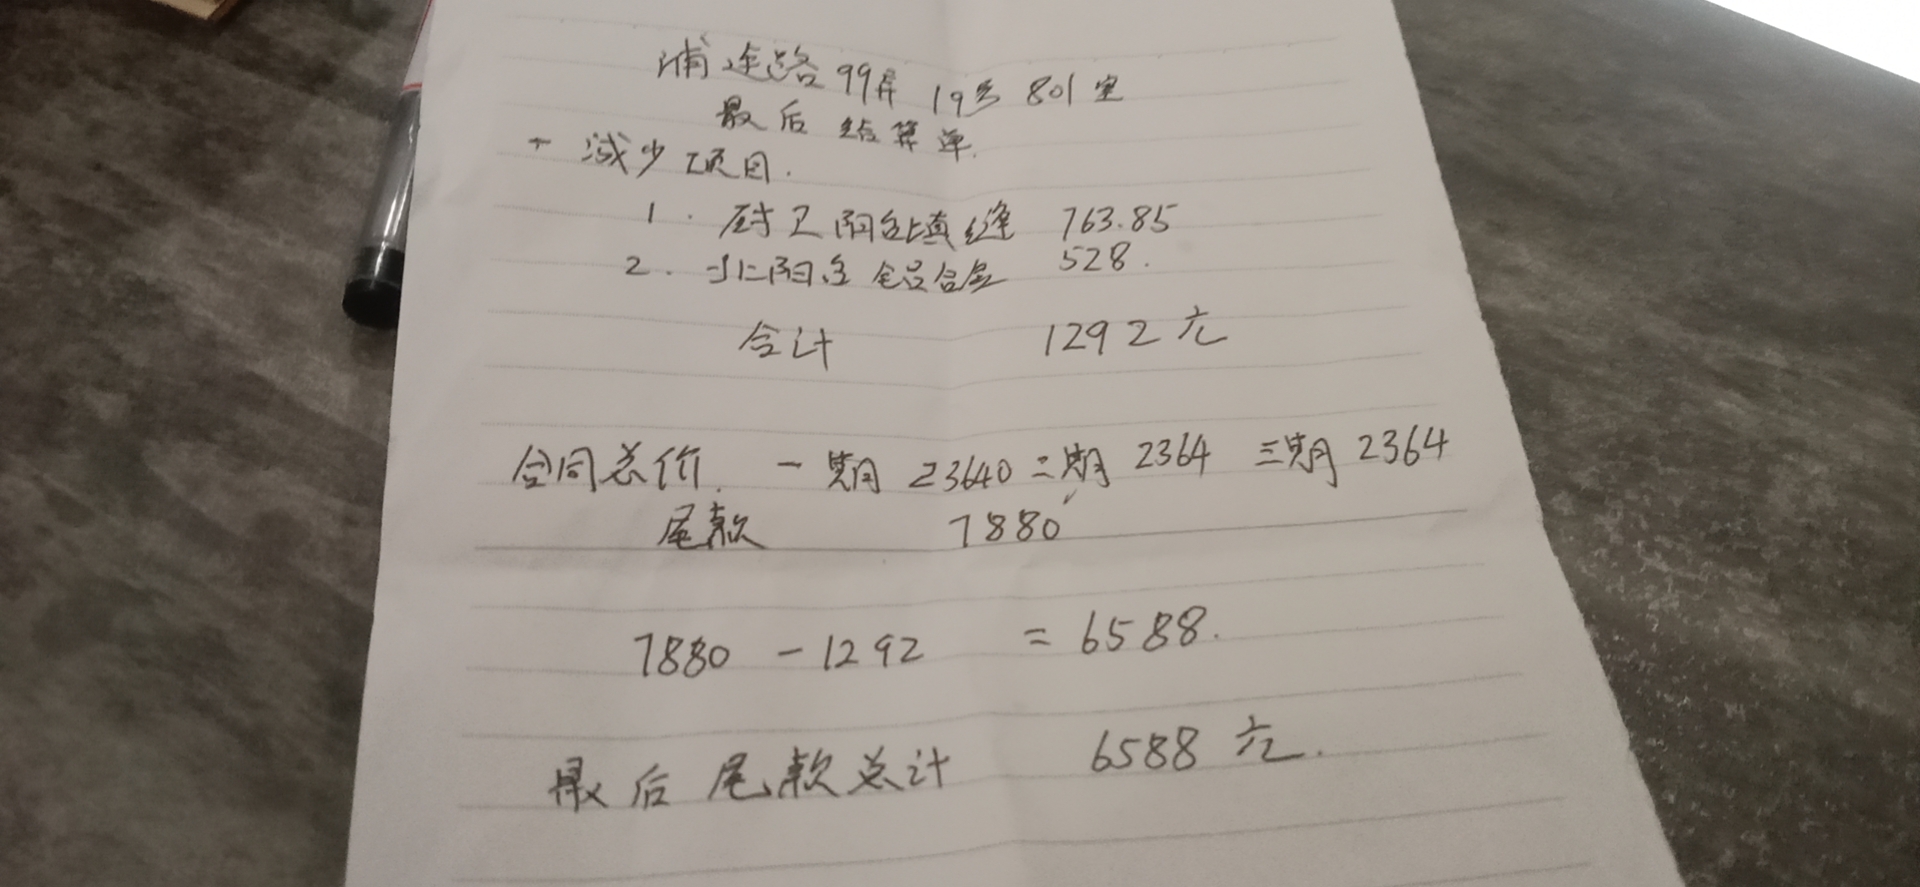 浦连路99弄19号801室
最后结算单.
一减少项目.
1. 厨卫阳台填缝 763.85
2. 北阳台铝合金 528.
合计 1292元
合同总价. 一期 23640 二期 2364 三期 2364
尾款 7880
7880 - 1292 = 6588.
最后尾款总计 6588元.